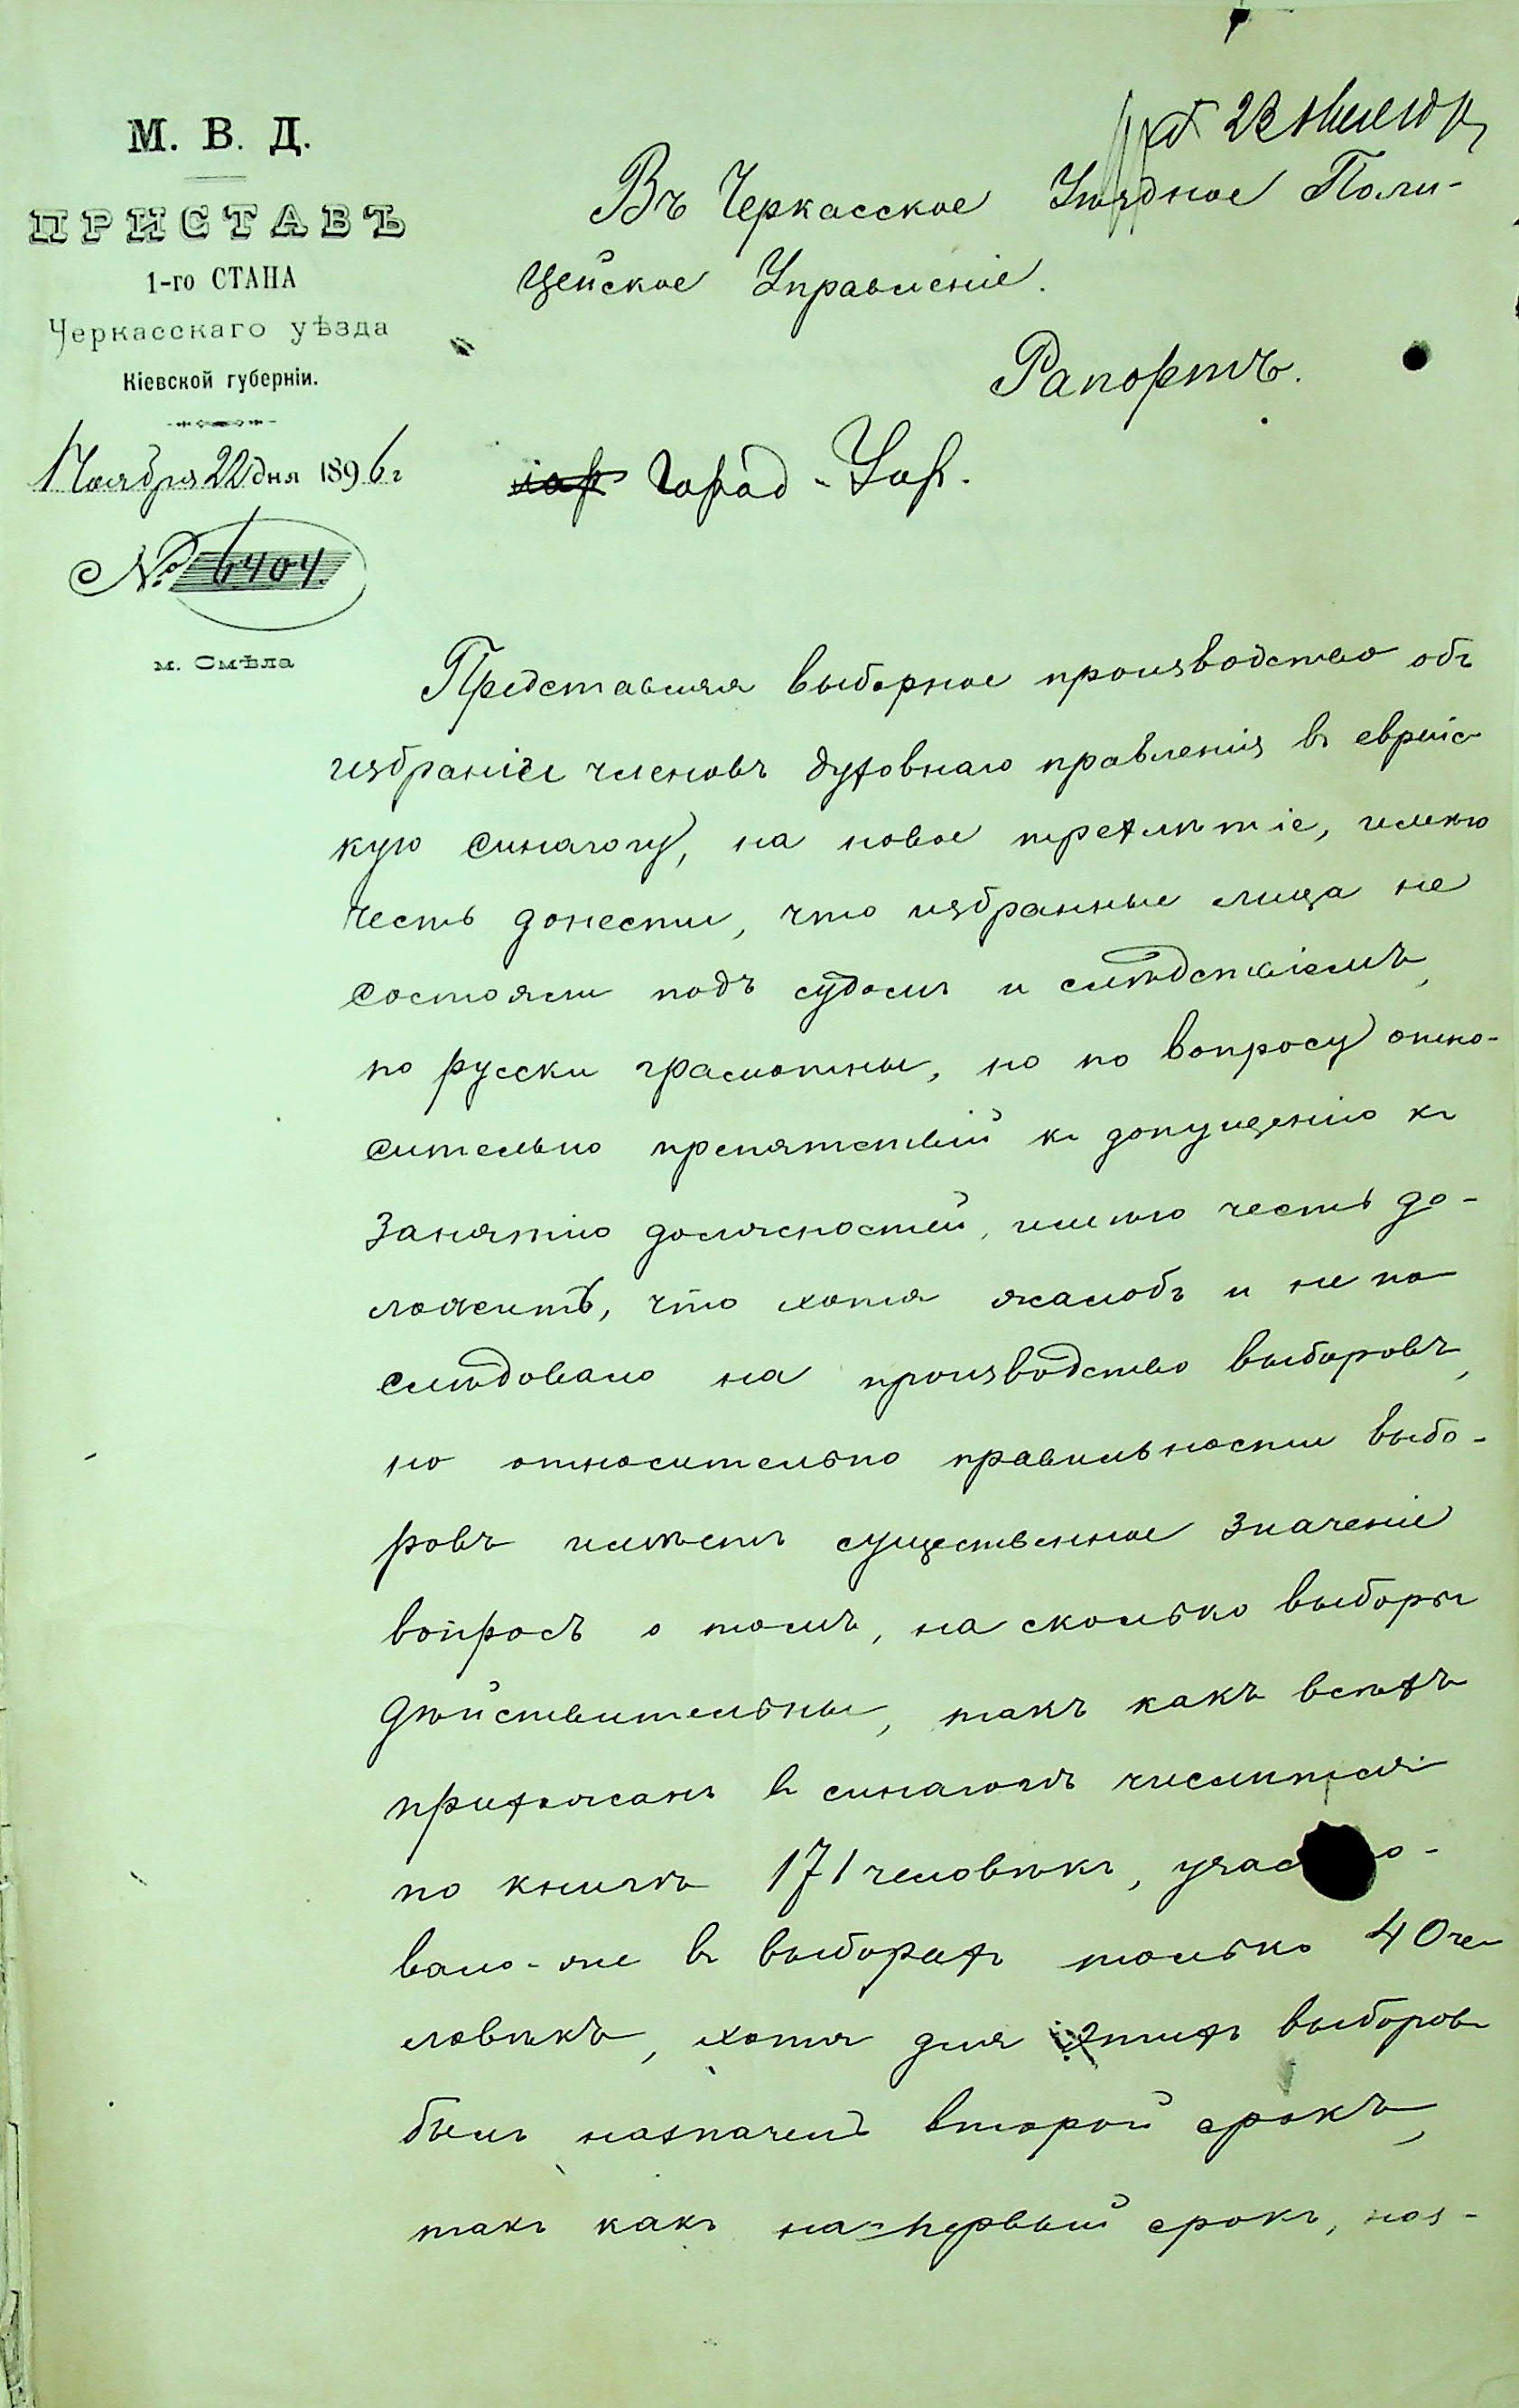 М. В. Д.
ПРИСТАВЪ
1-го СТАНА
Черкасскаго уѣзда
Кіевской губерніи.
Ноября 22 дня 1896 г
№ 6404
м. Смѣла
23
Въ Черкасское Уѣздное Поли-
цейское Управленіе.
Рапортъ.
Город-
Представляя выборное производство объ
избраніи членовъ духовнаго правленія въ еврейс
кую синагогу, на новое трехлѣтіе, имѣю
честь донести, что избранные лица не
состояли подъ судомъ и слѣдствіемъ,
по русски грамотны, но по вопросу отно-
сительно препятствій къ допущенію къ
занятію должностей, имѣю честь до-
ложить, что хотя жалобъ и не по
слѣдовало на производство выборовъ,
но относительно правильности выбо-
ровъ имѣетъ существенное значеніе
вопросъ о томъ, на сколько выборы
дѣйствительны, такъ какъ всѣхъ
прихожанъ въ синагогѣ числится
по книгѣ 171 человѣкъ, учас о-
вало-же въ выборахъ только 40 че
ловѣкъ, хотя для этихъ выборовъ
былъ назначенъ второй срокъ,
такъ какъ на первый срокъ, наз-